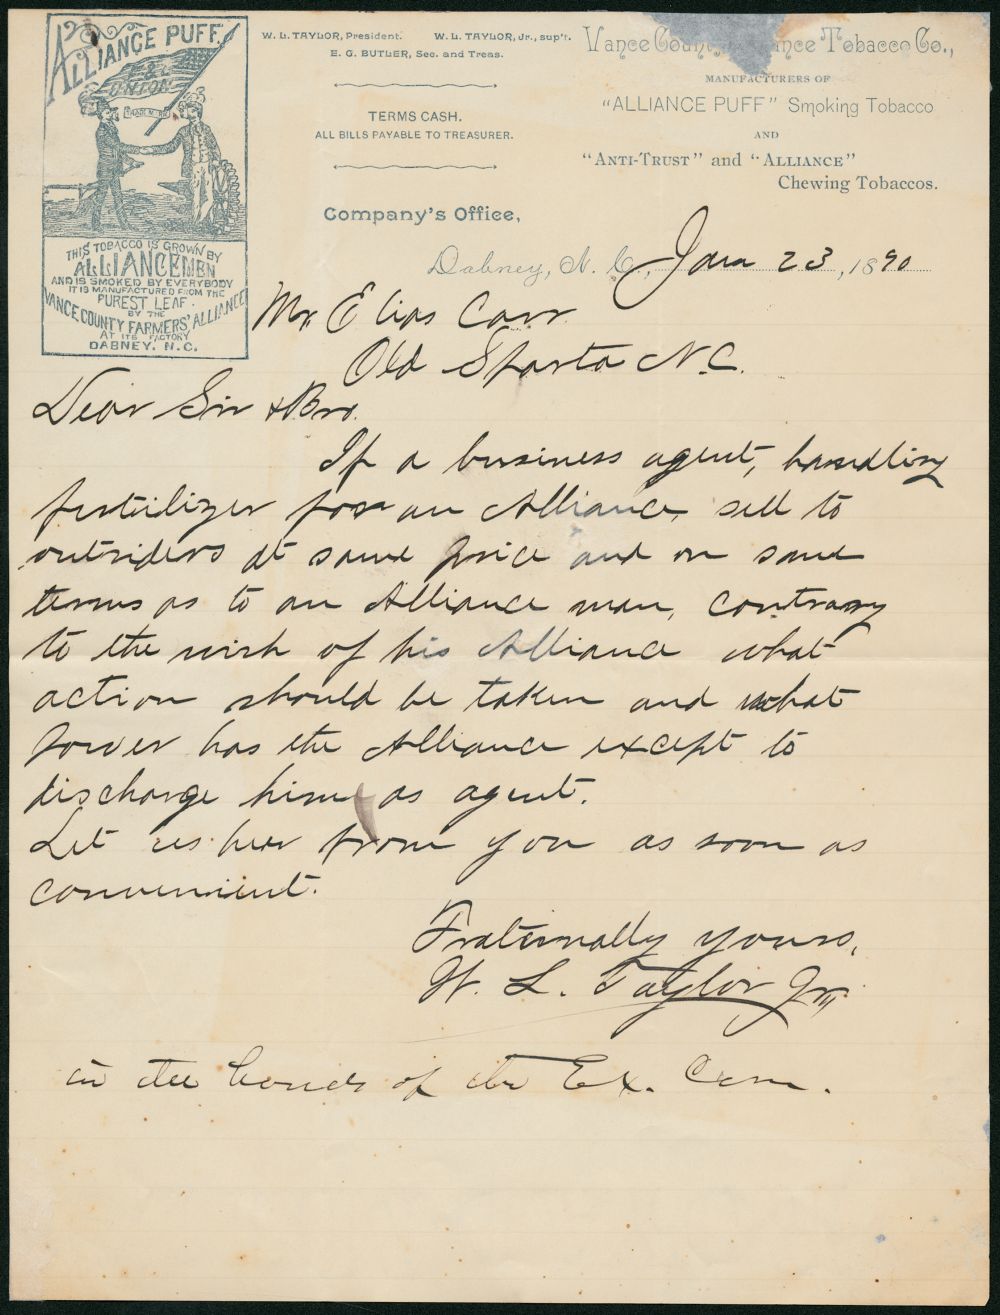 ALLIANCE PUFF.
F. & L.
UNION
TRADE MARK
THIS TOBACCO IS GROWN BY
ALLIANCEMEN
AND IS SMOKED BY EVERYBODY
IT IS MANUFACTURED FROM THE
PUREST LEAF.
BY THE
VANCE COUNTY FARMERS' ALLIANCE
AT ITS FACTORY
DABNEY, N.C.
W. L. TAYLOR, President. W. L. TAYLOR, Jr., sup't.
E. G. BUTLER, Sec. and Treas.
TERMS CASH.
ALL BILLS PAYABLE TO TREASURER.
Vance County Alliance Tobacco Co.,
MANUFACTURERS OF
"ALLIANCE PUFF" Smoking Tobacco
AND
"ANTI-TRUST" and "ALLIANCE"
Chewing Tobaccos.
Company's Office,
Dabney, N. C., Jan 23, 1890
Mr. Elias Carr
Old Sparta N.C.
Dear Sir & Bro.
If a business agent, handling
fertilizer for an Alliance, sell to
outsiders at same price and on same
terms as to an Alliance man, contrary
to the wish of his Alliance what
action should be taken and what
power has the Alliance except to
discharge him as agent.
Let us hear from you as soon as
convenient.
Fraternally yours,
W. L. Taylor Jr.
in the hands of the Ex. Com.